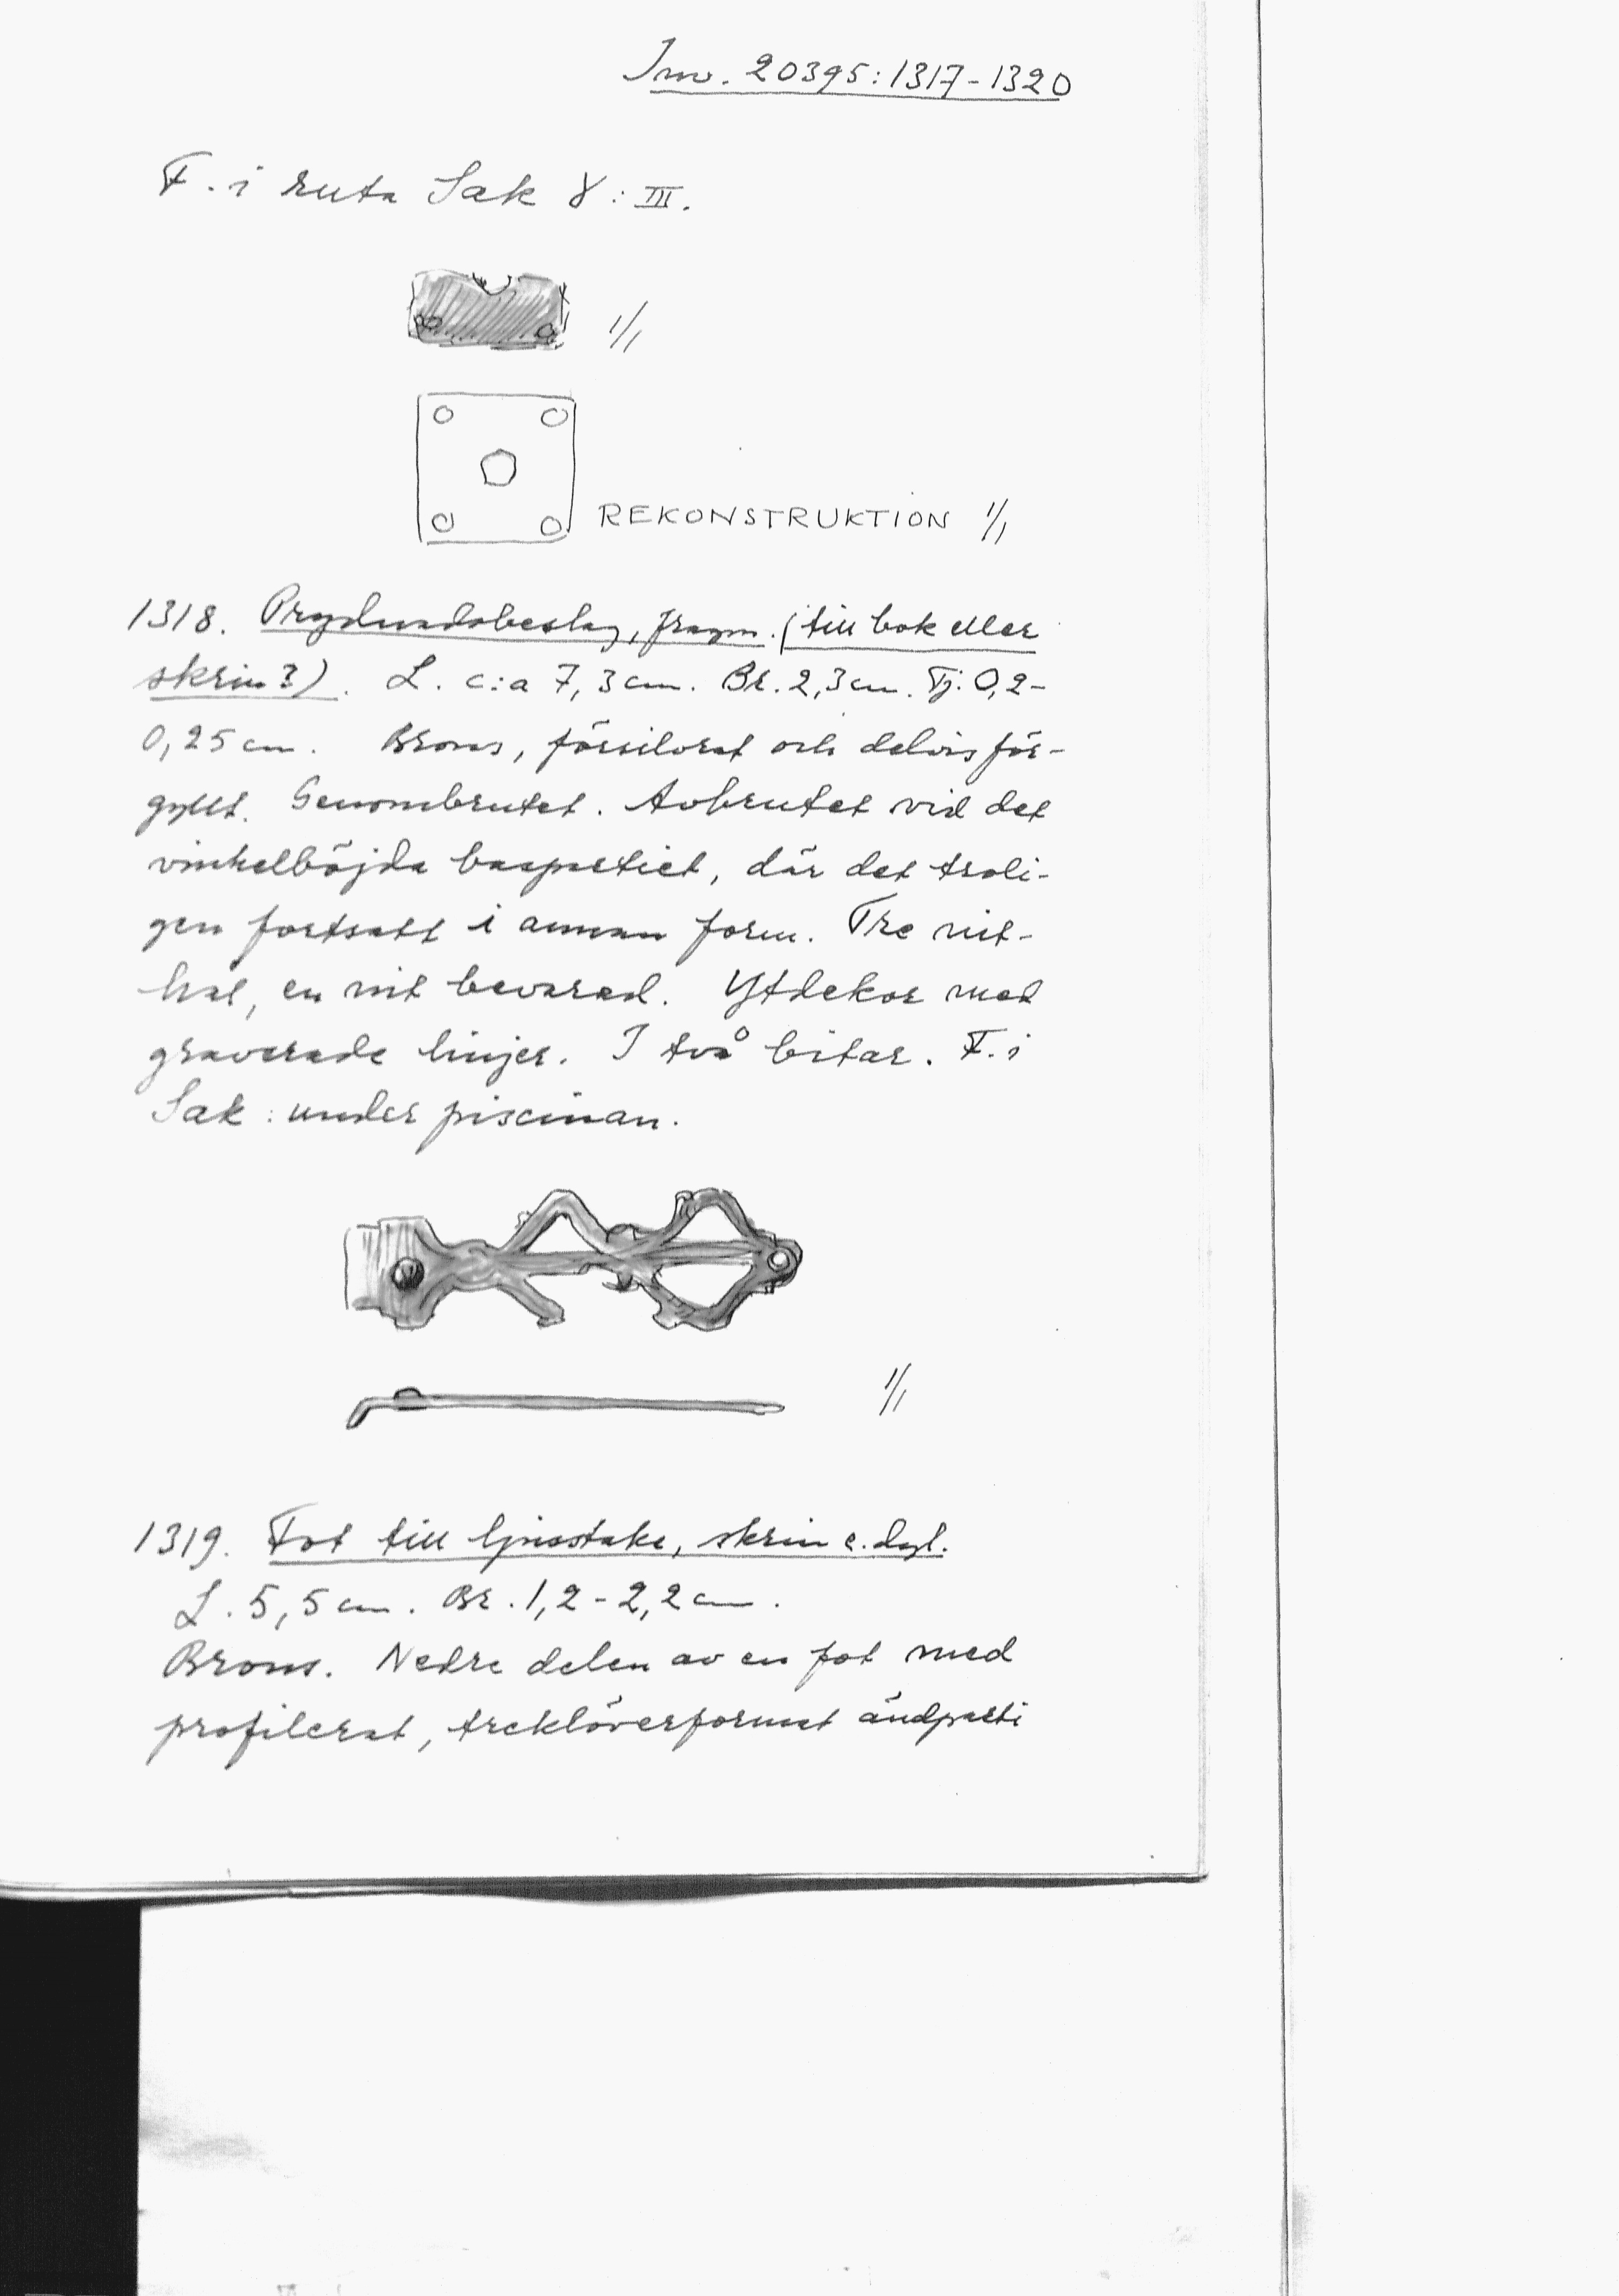 Inv. 20395:1317-1320
F. i ruta Sak 8: III.
1/1
REKONSTRUKTION 1/1
1318. Prydnadsbeslag, fragm. (till bok eller
skrin?). L. c:a 7,3 cm. Br. 2,3 cm. Tj. 0,2-
0,25 cm. Brons, försilvrat och delvis för-
gyllt. Genombrutet. Avbrutet vid det
vinkelböjda baspartiet, där det troli-
gen fortsatt i annan form. Tre nit-
hål, en nit bevarad. Ytdekor med
graverade linjer. I två bitar. F. i
Sak: under piscinan.
1/1
1319. Fot till ljusstake, skrin e. dyl.
L. 5,5 cm. Br. 1,2-2,2 cm.
Brons. Nedre delen av en fot med
profilerat, treklöverformat ändparti